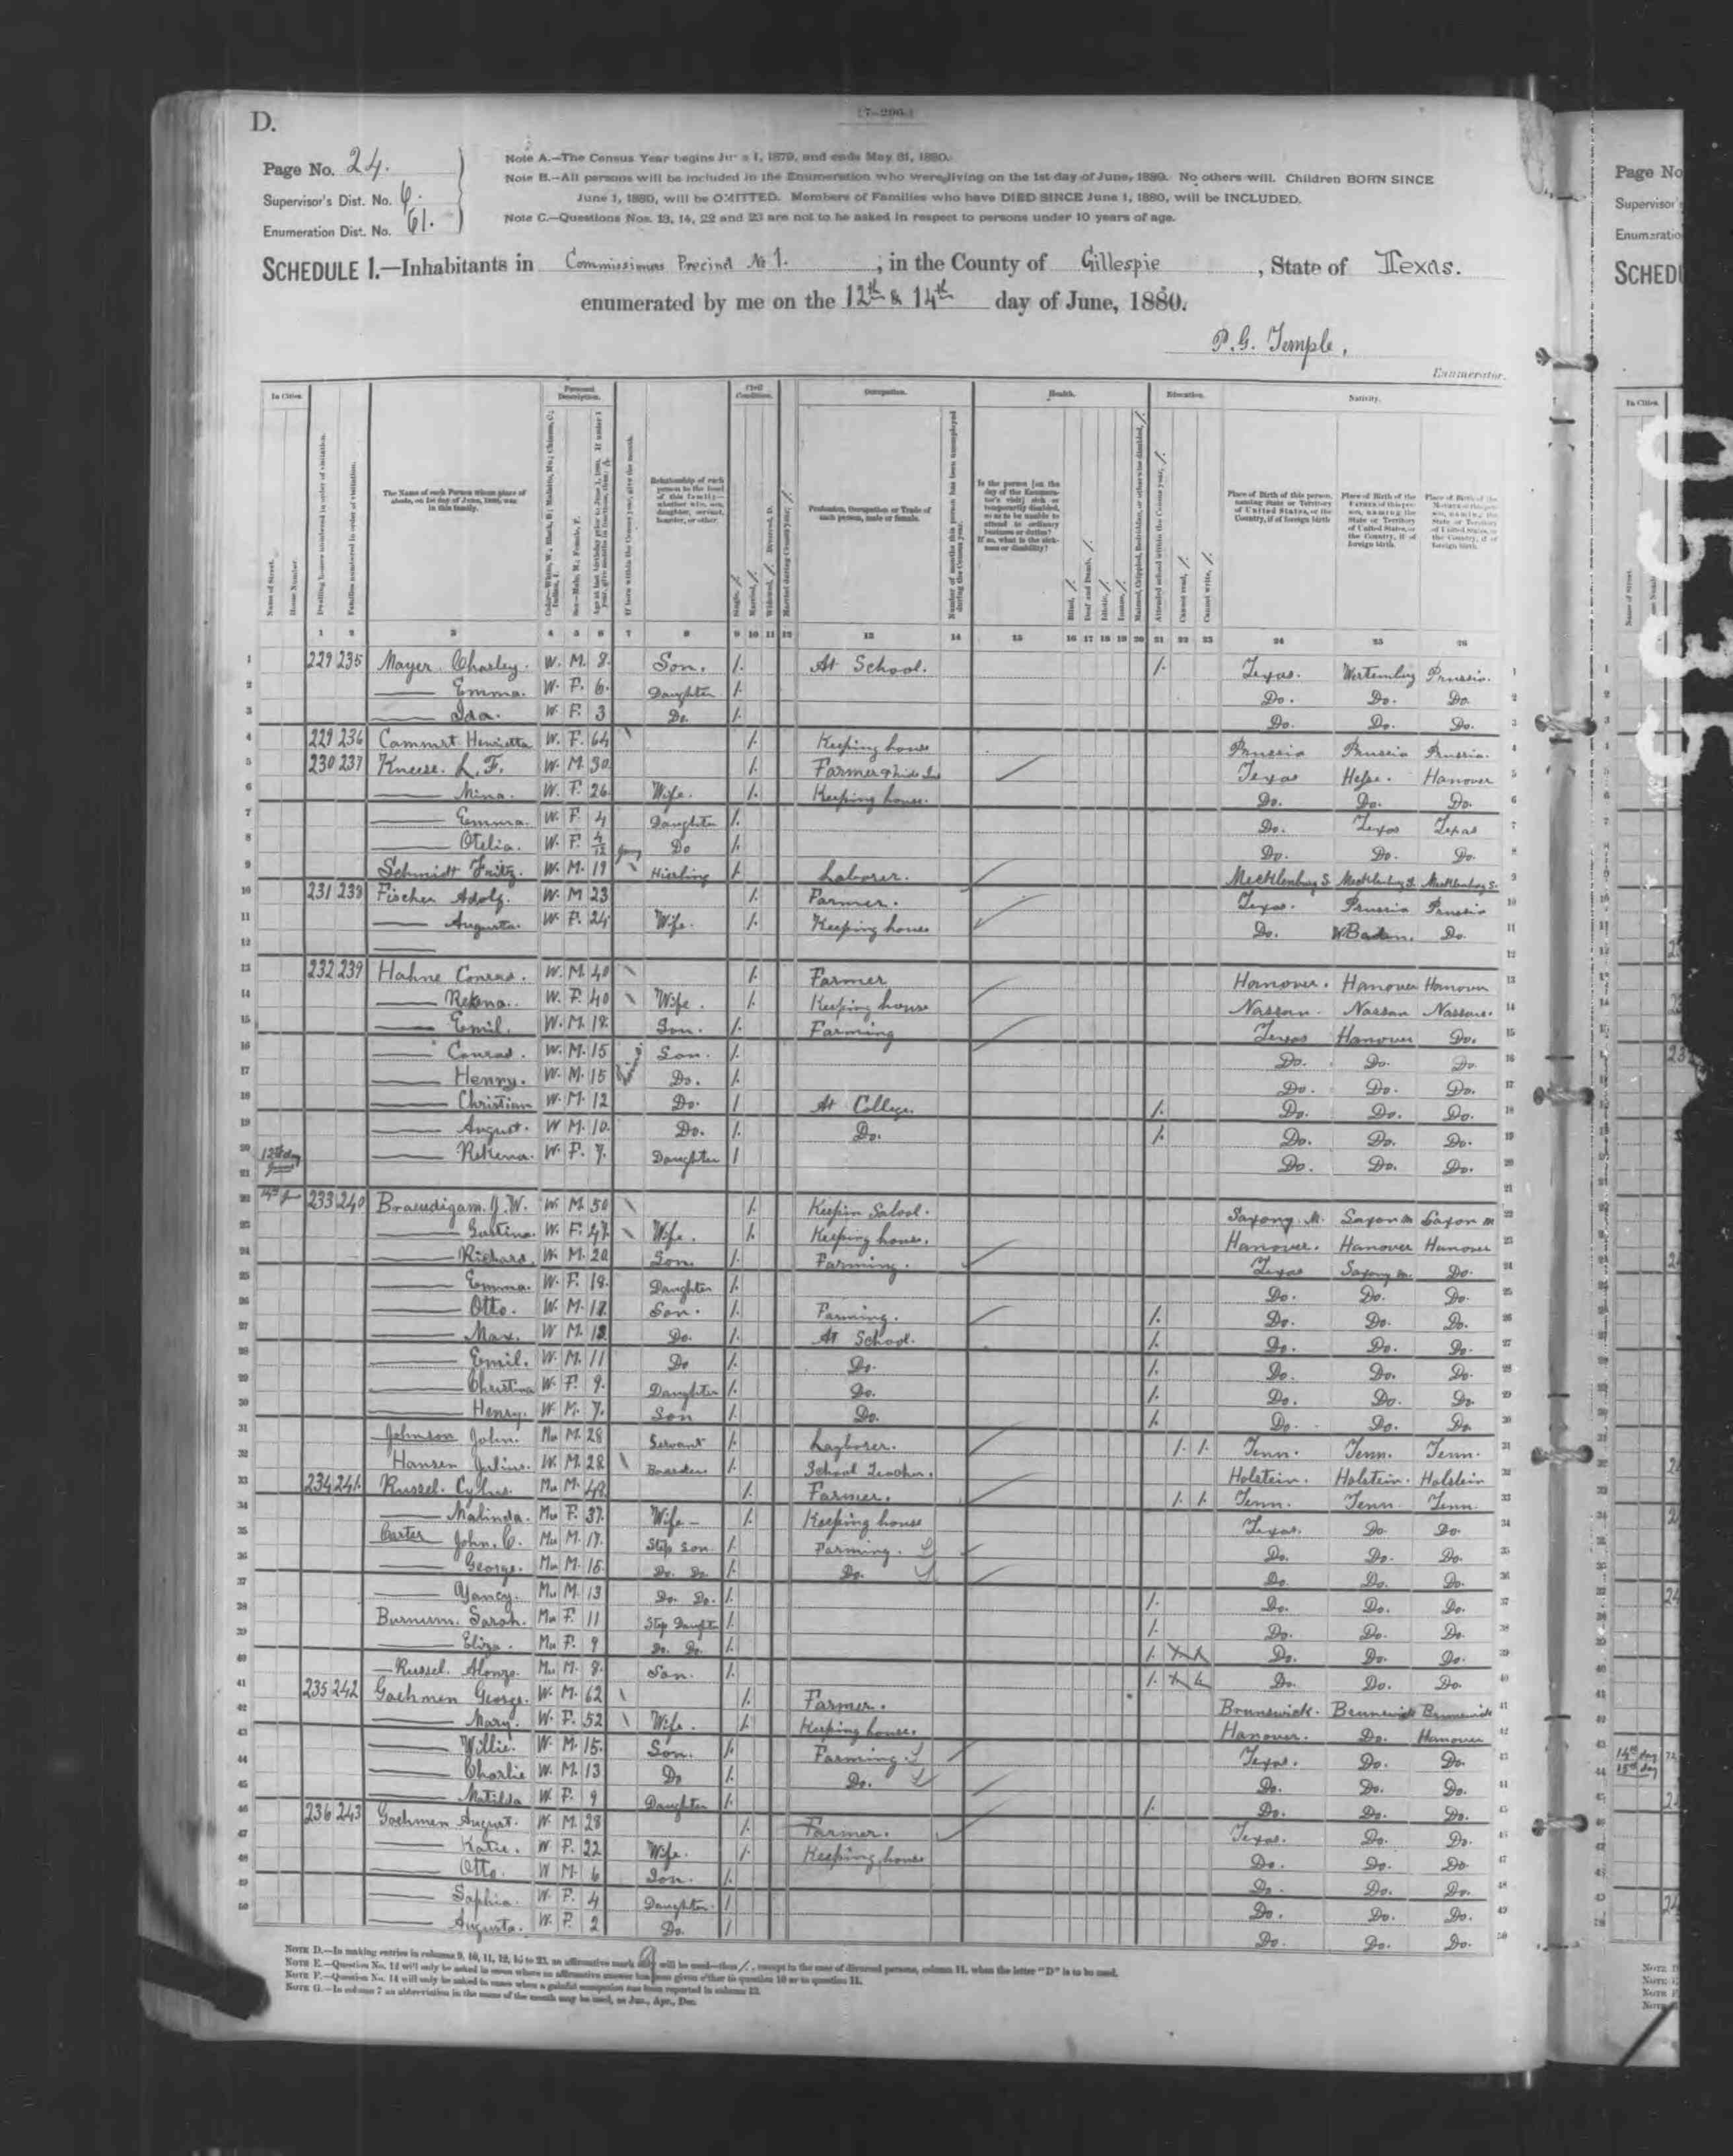 D.
(7-296.)
Page No. 24.
Supervisor's Dist. No. 6.
Enumeration Dist. No. 61.
Note A.—The Census Year begins June 1, 1879, and ends May 31, 1880.
Note B.—All persons will be included in the Enumeration who were living on the 1st day of June, 1880. No others will. Children BORN SINCE
June 1, 1880, will be OMITTED. Members of Families who have DIED SINCE June 1, 1880, will be INCLUDED.
Note C.—Questions Nos. 13, 14, 22 and 23 are not to be asked in respect to persons under 10 years of age.
SCHEDULE 1.—Inhabitants in Commissioners Precinct No 1., in the County of Gillespie, State of Texas.
enumerated by me on the 12th & 14th day of June, 1880.
P. G. Temple,
Enumerator.
In Cities. Personal Description. Civil Condition. Occupation. Health. Education. Nativity.
Name of Street. House Number. Dwelling houses numbered in order of visitation. Families numbered in order of visitation.
The Name of each Person whose place of abode, on 1st day of June, 1880, was in this family.
Relationship of each person to the head of this family—whether wife, son, daughter, servant, boarder, or other.
Profession, Occupation or Trade of each person, male or female.
Number of months this person has been unemployed during the Census year.
Place of Birth of this person, naming State or Territory of United States, or the Country, if of foreign birth.
1 2 3 4 5 6 7 8 9 10 11 12 13 14 15 16 17 18 19 20 21 22 23 24 25 26
1 229 235 Mayer Charley. W. M. 8. Son. /. At School. /. Texas. Wertemburg Prussia. 1
2 Emma. W. F. 6. Daughter /. Do. Do. Do. 2
3 Ida. W. F. 3 Do. /. Do. Do. Do. 3
4 229 236 Cammert Henrietta W. F. 64 /. Keeping house Prussia Prussia Prussia. 4
5 230 237 Kneese. L. F. W. M. 30. /. Farmer Texas Hesse. Hanover 5
6 Mina. W. F. 26 Wife. /. Keeping house. Do. Do. Do. 6
7 Emma. W. F. 4 Daughter /. Do. Texas Texas 7
8 Otelia. W. F. 4/12 Do /. Do. Do. Do. 8
9 Schmidt Fritz. W. M. 19 Hireling /. Laborer. Mecklenburg S. Mecklenburg S. Mecklenburg S. 9
10 231 238 Fischer Adolf. W. M 23 /. Farmer. Texas. Prussia Prussia 10
11 Augusta. W. F. 24 Wife. /. Keeping house Do. Baden. Do. 11
12 12
13 232 239 Hahne Conrad. W. M. 40 /. Farmer Hanover. Hanover Hanover 13
14 W. F. 40 Wife. /. Keeping house Nassau. Nassau Nassau. 14
15 Emil. W. M. 18. Son. /. Farming Texas Hanover Do. 15
16 Conrad. W. M. 15 Son. /. Do. Do. Do. 16
17 Henry. W. M. 15 Do. /. Do. Do. Do. 17
18 Christian W. M. 12 Do. / At College. /. Do. Do. Do. 18
19 August. W M. 10. Do. /. Do. /. Do. Do. Do. 19
20 12th day June W. F. 7. Daughter / Do. Do. Do. 20
21 21
22 233 240 Braeudigam. J. W. W. M. 50 /. Keepin Salool. Saxony M. Saxon M Saxon M 22
23 Gustina. W. F. 47. Wife. /. Keeping house. Hanover. Hanover Hanover 23
24 Richard. W. M. 20 Son. /. Farming. Texas Saxony M. Do. 24
25 Emma. W. F. 18. Daughter /. Do. Do. Do. 25
26 Otto. W. M. Son. /. Farming. /. Do. Do. Do. 26
27 Max. W M. Do. /. At School. /. Do. Do. Do. 27
28 Emil. W. M. 11 Do /. Do. /. Do. Do. Do. 28
29 Christina W. F. 9. Daughter /. Do. /. Do. Do. Do. 29
30 Henry. W. M. 7. Son /. Do. /. Do. Do. Do. 30
31 Johnson John. Mu M. 28 Servant /. Layborer. /. /. Tenn. Tenn. Tenn. 31
32 Hansen Julius. W. M. 28 Boarder. /. School Teacher. Holstein. Holstein. Holstein 32
33 234 241 Russel. Cyllus. Mu M. 48 /. Farmer. /. /. Tenn. Tenn. Tenn. 33
34 Malinda. Mu F. 37. Wife /. Keeping house Texas. Do. Do. 34
35 Carter John. C. Mu M. 17. Step son /. Farming. Do. Do. Do. 35
36 George. Mu M. 15 Do. Do. /. Do. Do. Do. Do. 36
37 Yancy. Mu M. 13 Do. Do. /. /. Do. Do. Do. 37
38 Burnum. Sarah. Mu F. 11 Step Daughter /. /. Do. Do. Do. 38
39 Eliza. Mu F. 9 Do. Do. /. /. Do. Do. Do. 39
40 Russel. Alonzo. Mu M. 8. Son. /. /. Do. Do. Do. 40
41 235 242 Gaehmen George. W. M. 62 /. Farmer. Brunswick. Brunswick Brunswick 41
42 Mary. W. F. 52 Wife. /. Keeping house. Hanover. Do. Hanover 42
43 Willie. W. M. 15. Son. /. Farming. Texas. Do. Do. 43
44 Charlie W. M. 13 Do /. Do. Do. Do. Do. 44
45 Matilda W. F. 9 Daughter /. /. Do. Do. Do. 45
46 236 243 Gaehmen August. W. M. 28 /. Farmer. Texas. Do. Do. 46
47 Katie. W. F. 22 Wife. /. Keeping house Do. Do. Do 47
48 Otto. W M. 6 Son. /. Do. Do. Do. 48
49 Saphia. W. F. 4 Daughter. / Do. Do. Do. 49
50 Augusta. W. F. 2 Do. / Do. Do. Do. 50
Note D.—In making entries in columns 9, 10, 11, 12, 16 to 23, an affirmative mark only will be used—thus /, except in the case of divorced persons, column 11, when the letter "D" is to be used.
Note E.—Question No. 12 will only be asked in cases where an affirmative answer has been given either to question 10 or to question 11.
Note F.—Question No. 14 will only be asked in cases when a gainful occupation has been reported in column 13.
Note G.—In column 7 an abbreviation in the name of the month may be used, as Jan., Apr., Dec.
Page No
Supervisor's
Enumeratio
SCHED
In Cities.